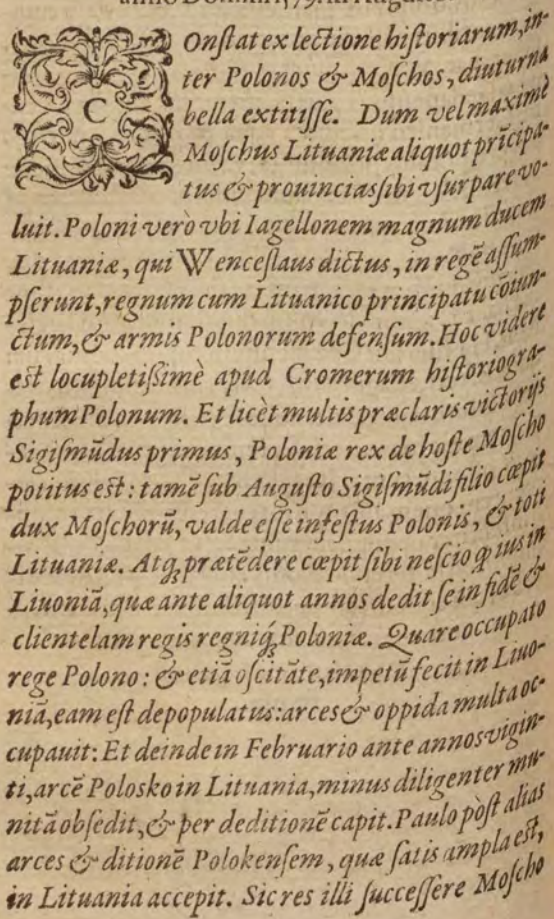 anno Domini 1579. in Augusto
COnſtat ex lectione hiſtoriarum, in-
ter Polonos & Moſchos, diuturna
bella extitiſſe. Dum vel maximè
Moſchus Lituaniæ aliquot prīcipa-
tus & prouincias ſibi vſurpare vo-
luit. Poloni verò vbi Iagellonem magnum ducem
Lituaniæ, qui Wenceſlaus dictus, in regē aſſum-
pſerunt, regnum cum Lituanico principatu cōiun-
ctum, & armis Polonorum defenſum. Hoc videre
eſt locupletiſſimè apud Cromerum hiſtoriogra-
phum Polonum. Et licèt multis præclaris victorijs
Sigiſmūdus primus, Poloniæ rex de hoſte Moſcho
potitus eſt: tamē ſub Auguſto Sigiſmūdi filio cœpit
dux Moſchorū, valde eſſe infeſtus Polonis, & toti
Lituaniæ. Atq; prætēdere cœpit ſibi neſcio q̄ ius in
Liuoniā, quæ ante aliquot annos dedit ſe in fidē &
clientelam regis regniq́; Poloniæ. Quare occupato
rege Polono: & etiā oſcitāte, impetū fecit in Liuo-
niā, eam eſt depopulatus: arces & oppida multa oc-
cupauit: Et deinde in Februario ante annos vigin-
ti, arcē Polosko in Lituania, minus diligenter mu-
nitā obſedit, & per deditionē capit. Paulo pòſt alias
arces & ditionē Polokenſem, quæ ſatis ampla eſt,
in Lituania accepit. Sic res illi ſucceſſere Moſcho